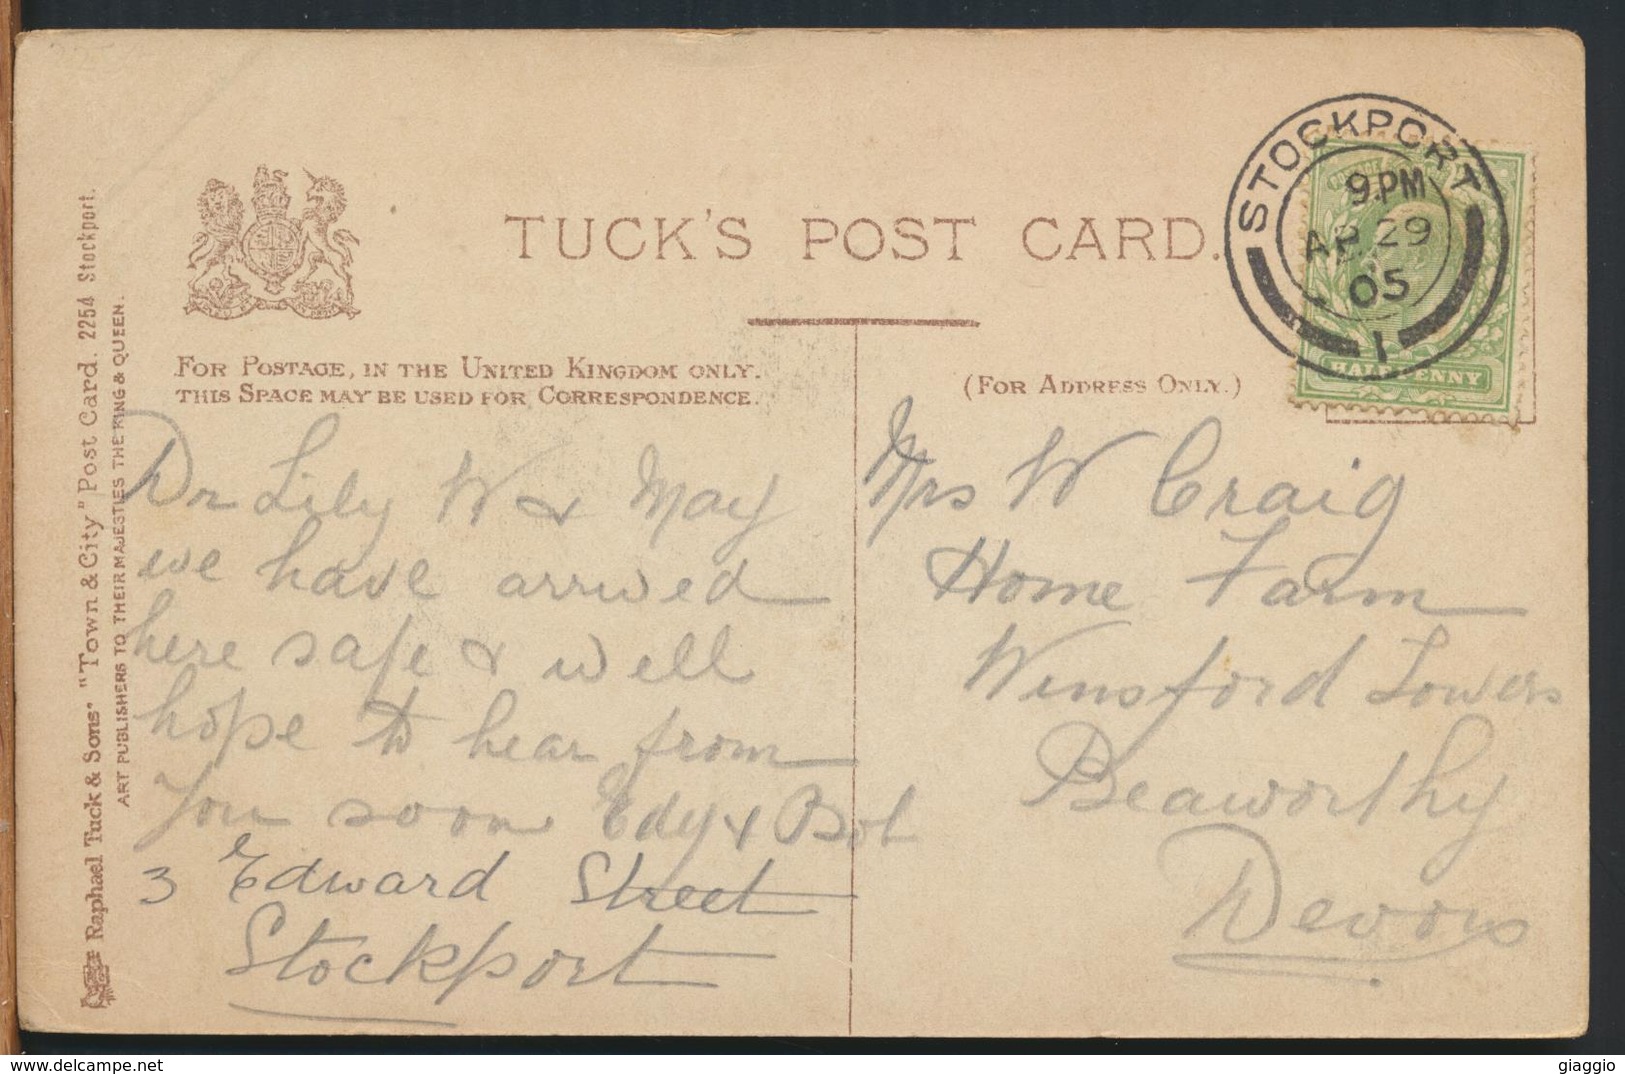 Raphael Tuck & Sons' "Town & City" Post Card. 2254 Stockport.
ART PUBLISHERS TO THEIR MAJESTIES THE KING & QUEEN.
TUCK'S POST CARD.
FOR POSTAGE, IN THE UNITED KINGDOM ONLY.
THIS SPACE MAY BE USED FOR CORRESPONDENCE.
(FOR ADDRESS ONLY.)
STOCKPORT
9.PM
AP 29
05
1
HALFPENNY
Dr Lily W & May
we have arrived
here safe & well
hope to hear from
you soon Edy & Bob
3 Edward Street
Stockport
Mrs W Craig
Home Farm
Winsford Towers
Beaworthy
Devon
giaggio